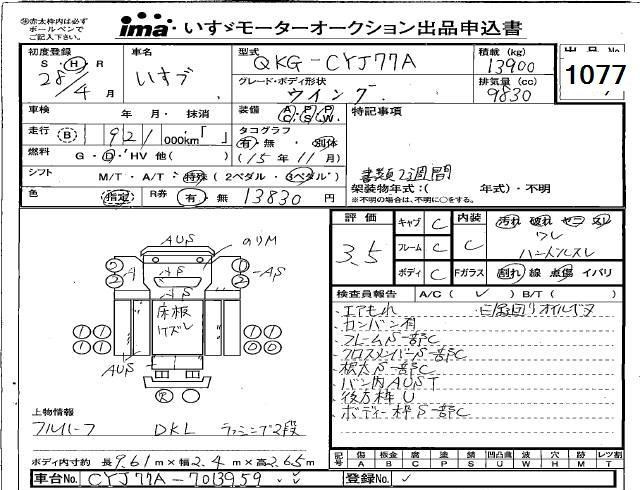 ㊟赤太枠内は必ず
ボールペンで
ご記入下さい。
ima いすゞモーターオークション出品申込書
初度登録 車名 型式 積載(kg) 出品No.
S・H・R いすゞ QKG-CYJ77A 13900
28年 4月 グレード・ボディ形状 排気量(cc) 1077
ウイング 9830
車検 年 月・抹消 装備 AC PS PW 特記事項
走行 B 921 000km「 」 タコグラフ
有・無 別体
燃料 G・D・HV 他( ) (15年 11月) 書類2週間
シフト M/T・A/T・特殊(2ペダル・3ペダル) 架装物年式:( 年式)・不明
※不明の場合は、不明に○をする。
色 指定 R券 有・無 13830円
評価 キャブ C 内装 汚れ 破れ セコ スレ
3.5 フレーム C C ワレ
ハンドルスレ
ボディ C Fガラス 割れ 線 点傷 イバリ
AUS
のりM
2 2 A 2 2 -AS
床板
ケズレ
1 1 1 1
1 1 1 0 0
AUS
R
検査員報告 A/C( ✓ )B/T( )
・エアもれ
・カンバン有
・フレームS一部C
・クロスメンバーS一部C
・根太S一部C
・バン内AUST
・後方枠U
・ボディー枠S一部C
上物情報
フルハーフ DKL ラッシング2段
ボディ内寸約 長9.61m×幅2.4m×高2.65m
記号 傷 板金 腐 塗 錆 凹凸曲 波 穴 跡 レツ割
A B C P S U W H M T
車台No. CYJ77A-7013959 登録No.